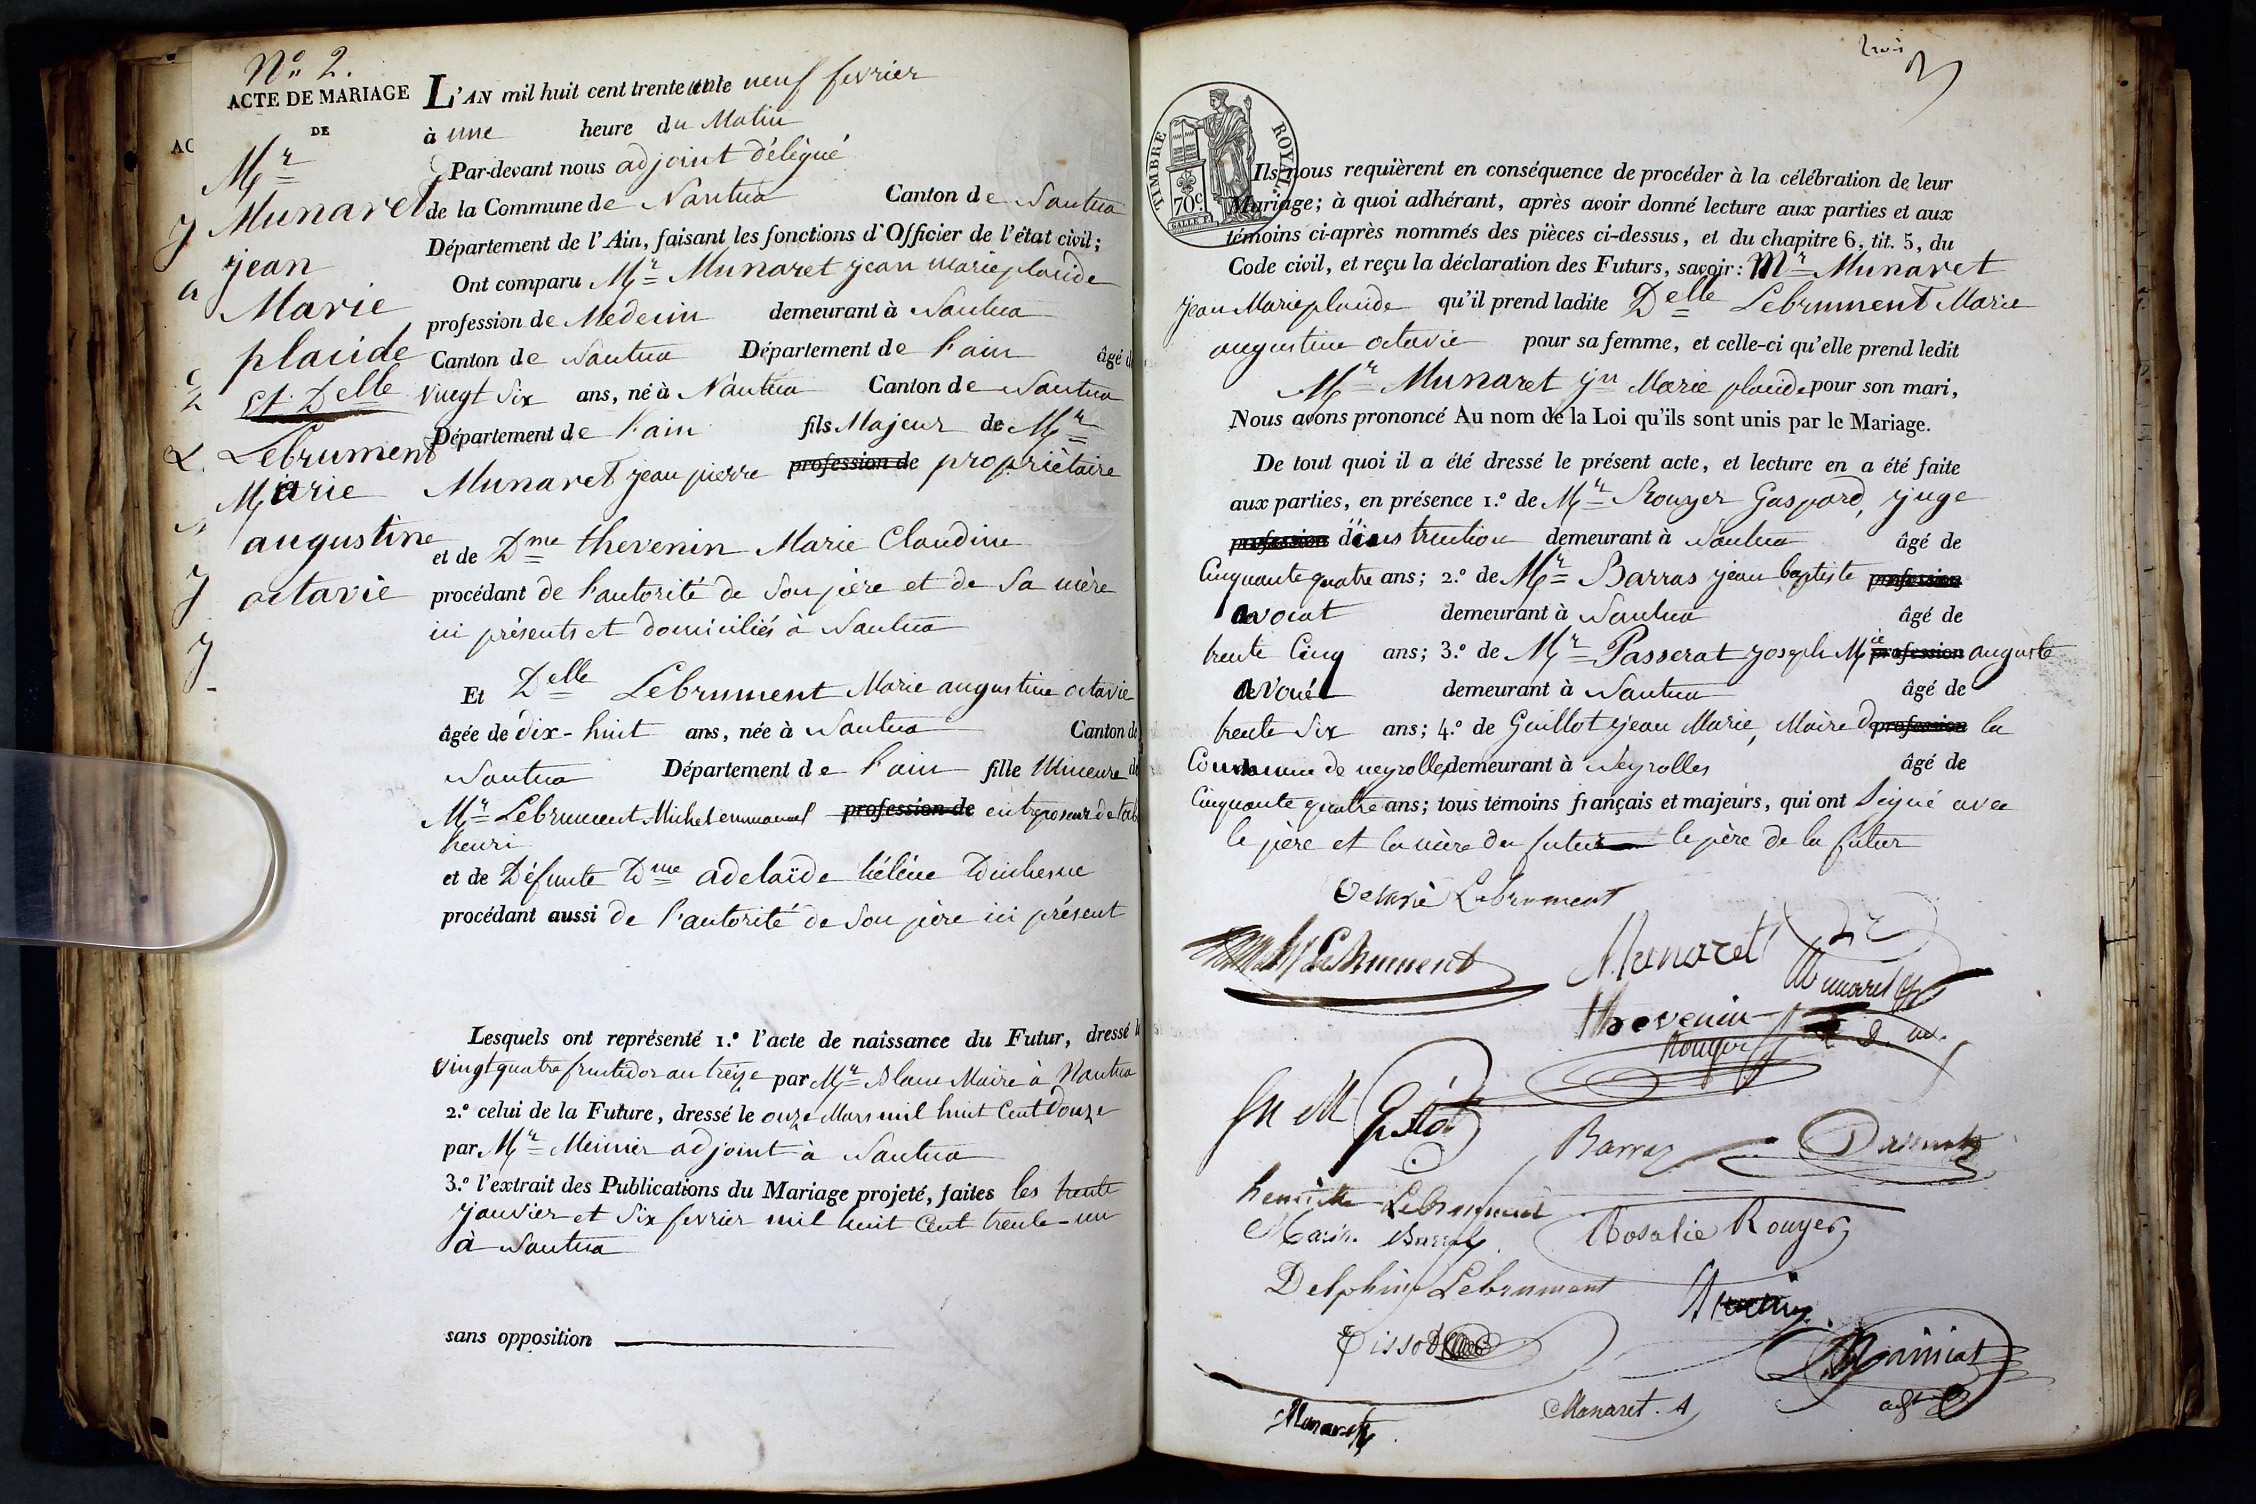 N.º 2.
ACTE DE MARIAGE
DE
Mr
Munaret
jean
Marie
placide
et Delle
Lebrument
Marie
augustine
octavie
L'AN mil huit cent trente un le neuf fevrier
à une heure du Matin
Par-devant nous adjoint délégué
de la Commune de Nantua Canton de Nantua
Département de l'Ain, faisant les fonctions d'Officier de l'état civil;
Ont comparu Mr Munaret jean marie placide
profession de Medecin demeurant à Nantua
Canton de Nantua Département de l'ain âgé d
vingt Six ans, né à Nantua Canton de Nantua
Département de l'ain fils Majeur de Mr
Munaret jean pierre profession de propriétaire
et de Dme thevenin Marie Claudine
procédant de l'autorité de Son père et de Sa mère
ici présents et domiciliés à Nantua
Et Delle Lebrument Marie augustine octavie
âgée de dix-huit ans, née à Nantua Canton de
Nantua Département de l'ain fille Mineure de
Mr Lebrument Michel emmanuel profession de entreposeur de tab
henri
et de Défunte Dme adelaïde hélène Duchesne
procédant aussi de l'autorité de Son père ici présent
Lesquels ont représenté 1.º l'acte de naissance du Futur, dressé l
vingt quatre fructidor an treize par Mr Blanc Maire à Nantua
2.º celui de la Future, dressé le onze Mars mil huit Cent Douze
par Mr Meinier adjoint à Nantua
3.º l'extrait des Publications du Mariage projeté, faites les trente
janvier et Six fevrier mil huit Cent trente-un
à Nantua
sans opposition
trois
3
TIMBRE ROYAL.
70c
Ils nous requièrent en conséquence de procéder à la célébration de leur
Mariage; à quoi adhérant, après avoir donné lecture aux parties et aux
témoins ci-après nommés des pièces ci-dessus, et du chapitre 6, tit. 5, du
Code civil, et reçu la déclaration des Futurs, savoir: Mr Munaret
jean Marie placide qu'il prend ladite Delle Lebrument Marie
augustine octavie pour sa femme, et celle-ci qu'elle prend ledit
Mr Munaret jn Marie placide pour son mari,
Nous avons prononcé Au nom de la Loi qu'ils sont unis par le Mariage.
De tout quoi il a été dressé le présent acte, et lecture en a été faite
aux parties, en présence 1.º de Mr Rouyer Gaspard, juge
profession d'instruction demeurant à Nantua âgé de
Cinquante quatre ans; 2.º de Mr Barras jean baptiste profession
avocat demeurant à Nantua âgé de
trente Cinq ans; 3.º de Mr Passerat joseph Mie profession auguste
avoué demeurant à Nantua âgé de
trente Six ans; 4.º de Guillot jean Marie, Maire de profession la
Commune de neyrolles demeurant à Neyrolles âgé de
Cinquante quatre ans; tous témoins français et majeurs, qui ont Signé avec
le père et la mère du futur le père de la futur
Octavie Lebrument
Lebrument
Munaret
Munaret
thevenin
Rouyer
Barras
henriette Lebrument
Rosalie Rouyer
Delphine Lebrument
Tissot
Munaret
Munaret. A